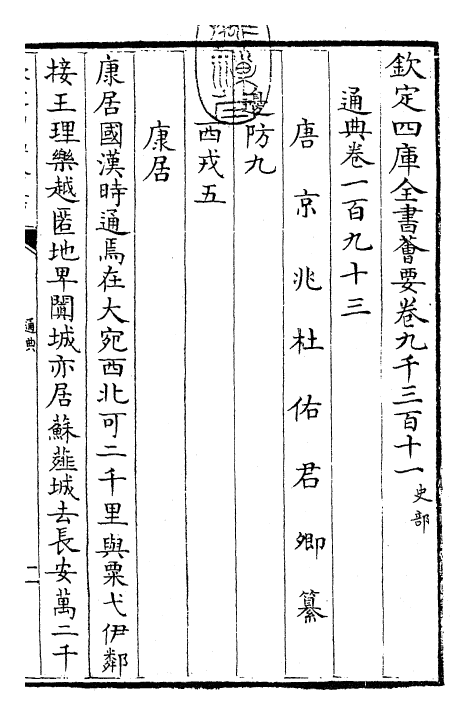 欽定四庫全書薈要卷九千三百十一史部
通典卷一百九十三
唐京兆杜佑君卿纂
邊防九
西戎五
康居
康居國漢時通焉在大宛西北可二千里與粟弋伊鄰
接王理樂越匿地卑闐城亦居蘇薤城去長安萬二千
通典